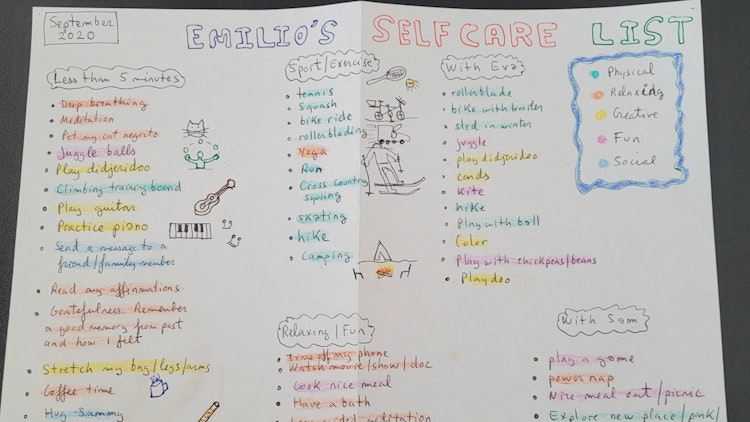 September
2020
EMILIO'S SELF CARE LIST
Less than 5 minutes
Deep breathing
Meditation
Pet my cat negrito
Juggle balls
Play didjeridoo
Climbing training board
Play guitar
Practice piano
Send a message to a
friend/family member
Read my affirmations
Gratefulness: Remember
a good memory from past
and how I felt
Stretch my bag/legs/arms
Coffee time
Hug Sammy
Sport/Exercise
tennis
Squash
bike ride
rollerblading
Yoga
Run
Cross Country
skating
hike
Camping
Relaxing/Fun
Time off my phone
Watch movie/show/doc
Cook nice meal
Have a bath
guided meditation
With Eva
rollerblade
bike with trailer
sled in winter
juggle
play didjeridoo
cards
kite
hike
Play with ball
Color
Play with chickpeas/beans
Playdoo
Physical
Relaxing
Creative
Fun
Social
With Sam
play a game
power nap
Nice meal out/picnic
Explore new place/park/